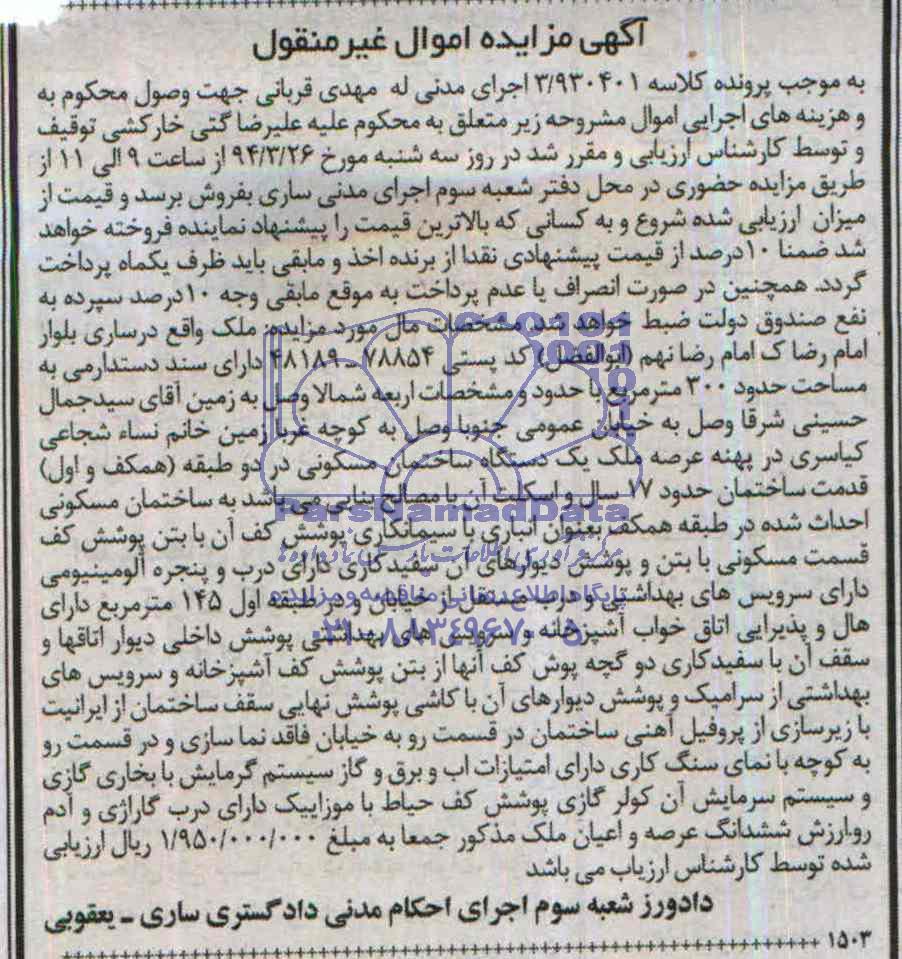 آگهی مزایده اموال غیر منقول
به موجب پرونده کلاسه ۳/۹۳۰۴۰۱ اجرای مدنی له مهدی قربانی جهت وصول محکوم به
و هزینه های اجرایی اموال مشروحه زیر متعلق به محکوم علیه علیرضا گتی خارکشی توقیف
و توسط کارشناس ارزیابی و مقرر شد در روز سه شنبه مورخ ۹۴/۳/۲۶ از ساعت ۹ الی ۱۱ از
طریق مزایده حضوری در محل دفتر شعبه سوم اجرای مدنی ساری بفروش برسد و قیمت از
میزان ارزیابی شده شروع و به کسانی که بالاترین قیمت را پیشنهاد نماینده فروخته خواهد
شد ضمنا ۱۰درصد از قیمت پیشنهادی نقدا از برنده اخذ و مابقی باید ظرف یکماه پرداخت
گردد. همچنین در صورت انصراف یا عدم پرداخت به موقع مابقی وجه ۱۰درصد سپرده به
نفع صندوق دولت ضبط خواهد شد. مشخصات مال مورد مزایده: ملک واقع درساری بلوار
امام رضا ک امام رضا نهم (ابوالفضل) کد پستی ۷۸۸۵۴ ـ ۴۸۱۸۹ دارای سند دستدارمی به
مساحت حدود ۳۰۰ مترمربع با حدود و مشخصات اربعه شمالا وصل به زمین آقای سیدجمال
حسینی شرقا وصل به خیابان عمومی جنوبا وصل به کوچه غربا زمین خانم نساء شجاعی
کیاسری در پهنه عرصه ملک یک دستگاه ساختمان مسکونی در دو طبقه (همکف و اول)
قدمت ساختمان حدود ۱۷ سال و اسکلت آن با مصالح بنایی می باشد به ساختمان مسکونی
احداث شده در طبقه همکف بعنوان انباری با سیمانکاری پوشش کف آن با بتن پوشش کف
قسمت مسکونی با بتن و پوشش دیوارهای آن سفیدکاری دارای درب و پنجره آلومینیومی
دارای سرویس های بهداشتی و درب مستقل از خیابان و در طبقه اول ۱۴۵ مترمربع دارای
هال و پذیرایی اتاق خواب آشپزخانه و سرویس های بهداشتی پوشش داخلی دیوار اتاقها و
سقف آن با سفیدکاری دو گچه پوش کف آنها از بتن پوشش کف آشپزخانه و سرویس های
بهداشتی از سرامیک و پوشش دیوارهای آن با کاشی پوشش نهایی سقف ساختمان از ایرانیت
با زیرسازی از پروفیل آهنی ساختمان در قسمت رو به خیابان فاقد نما سازی و در قسمت رو
به کوچه با نمای سنگ کاری دارای امتیازات اب و برق و گاز سیستم گرمایش با بخاری گازی
و سیستم سرمایش آن کولر گازی پوشش کف حیاط با موزاییک دارای درب گاراژی و آدم
رو.ارزش ششدانگ عرصه و اعیان ملک مذکور جمعا به مبلغ ۱/۹۵۰/۰۰۰/۰۰۰ ریال ارزیابی
شده توسط کارشناس ارزیاب می باشد
دادورز شعبه سوم اجرای احکام مدنی دادگستری ساری ـ یعقوبی
۱۵۰۳
ParsNamadData
پایگاه اطلاع رسانی مناقصه و مزایده
۰۲۱-۸۸۳۴۹۶۷۰-۵